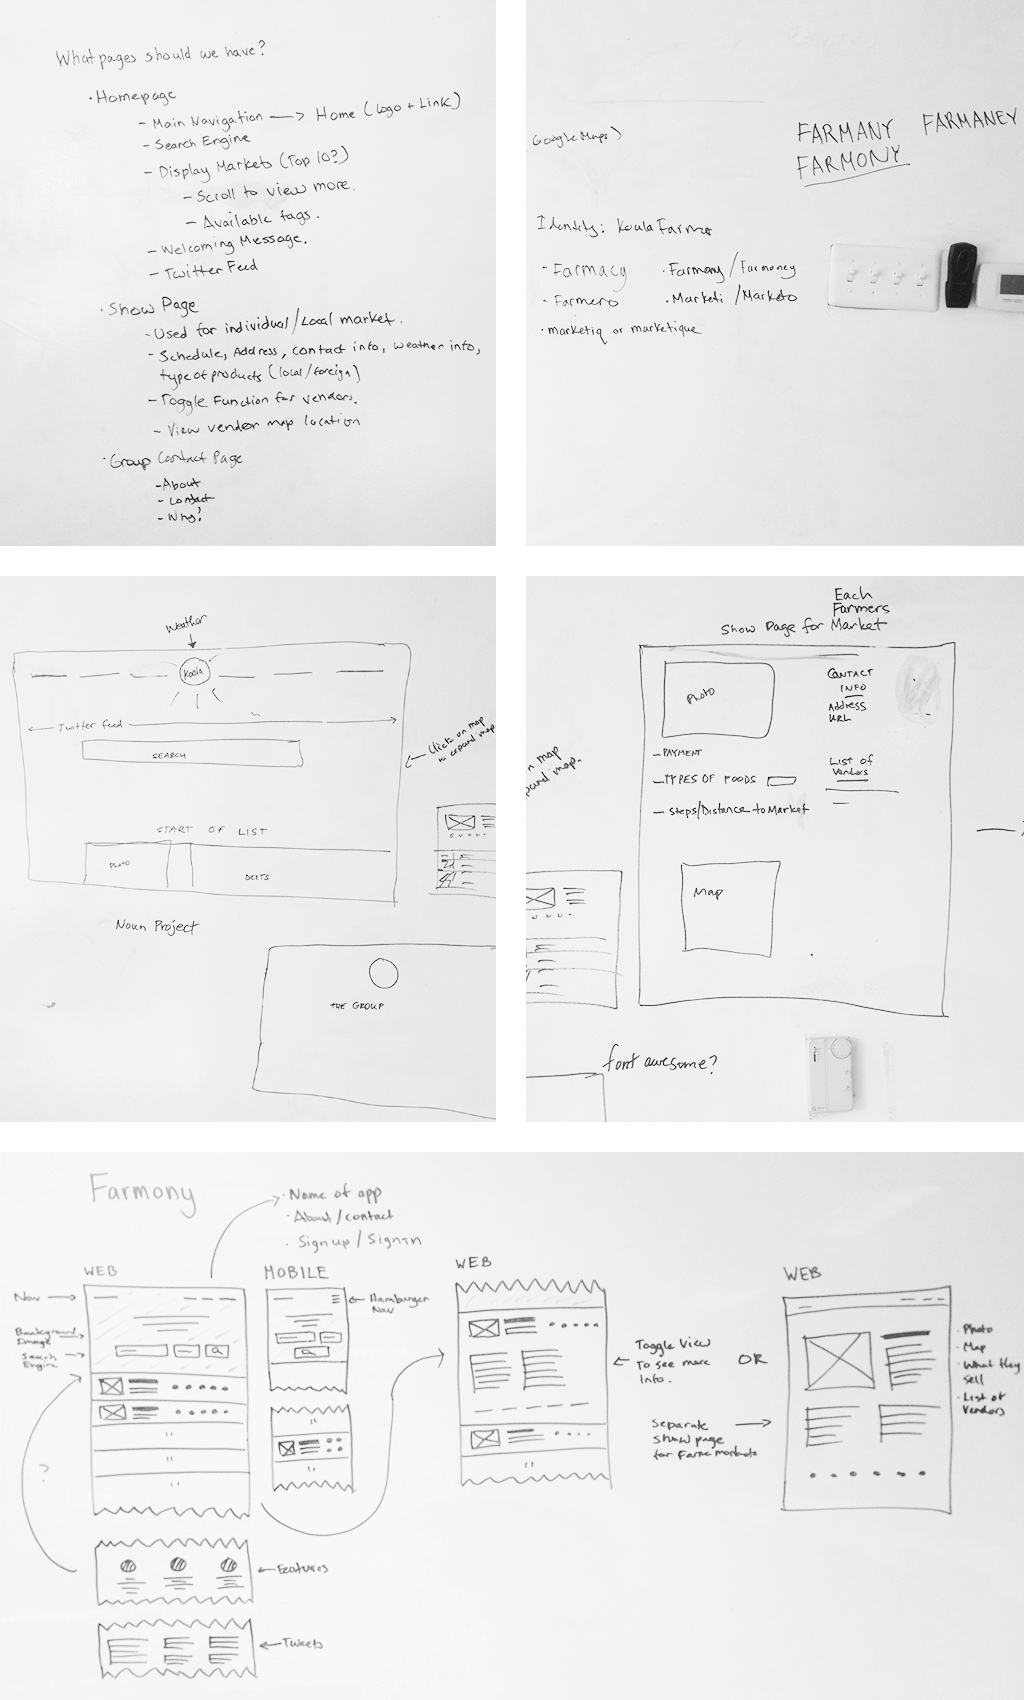 What pages should we have?
· Homepage
- Main Navigation → Home (Logo + Link)
- Search Engine
- Display Markets (Top 10?)
- Scroll to view more.
- Available tags.
- Welcoming Message.
- Twitter Feed
· Show Page
- Used for individual/Local market.
- Schedule, Address, contact info, weather info,
type of products (local/foreign)
- Toggle Function for vendors.
- View vendor map location
· Group Contact Page
- About
- Contact
- Why?
Google Maps)
FARMANY FARMANEY
FARMONY
Identity: Koala Farmer
- Farmacy · Farmony/Farmoney
- Farmero · Marketi/Marketo
· marketiq or marketique
Weather
Koala
Twitter feed
SEARCH
Click on map
to expand map
START OF LIST
PHOTO
DEETS
Noun Project
THE GROUP
Each
Farmers
Show Page for Market
Photo
CONTACT
INFO
Address
URL
- PAYMENT
- TYPES OF FOODS
- Steps/Distance to Market
List of
Vendors
n map
pand map.
Map
font awesome?
Farmony
· Name of app
· About/contact
· Sign up/Sign in
WEB
MOBILE
WEB
WEB
Nav →
Background
Image →
Search
Engine →
← Hamburger
Nav
← Toggle View
To see more
Info.
OR
Separate →
Show page
for Farmer markets
· Photo
· Map
· What they
sell
· List of
Vendors
?
← Features
← Tweets